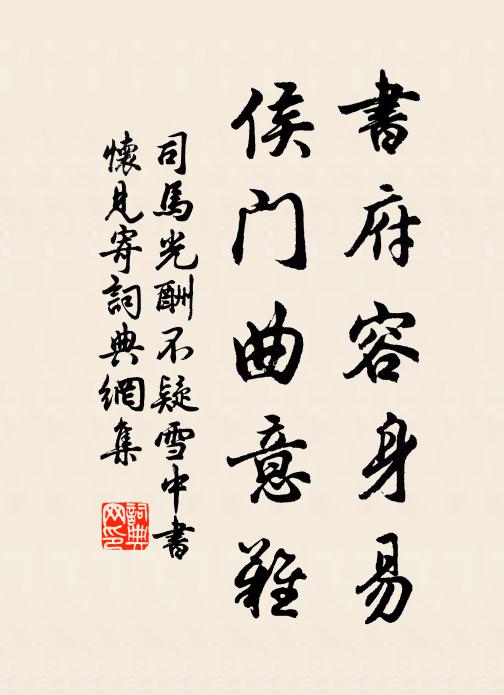 書府容身易
侯门曲意難
司馬光酬不疑雪中書
懷見寄詞典網集
詞典
网印